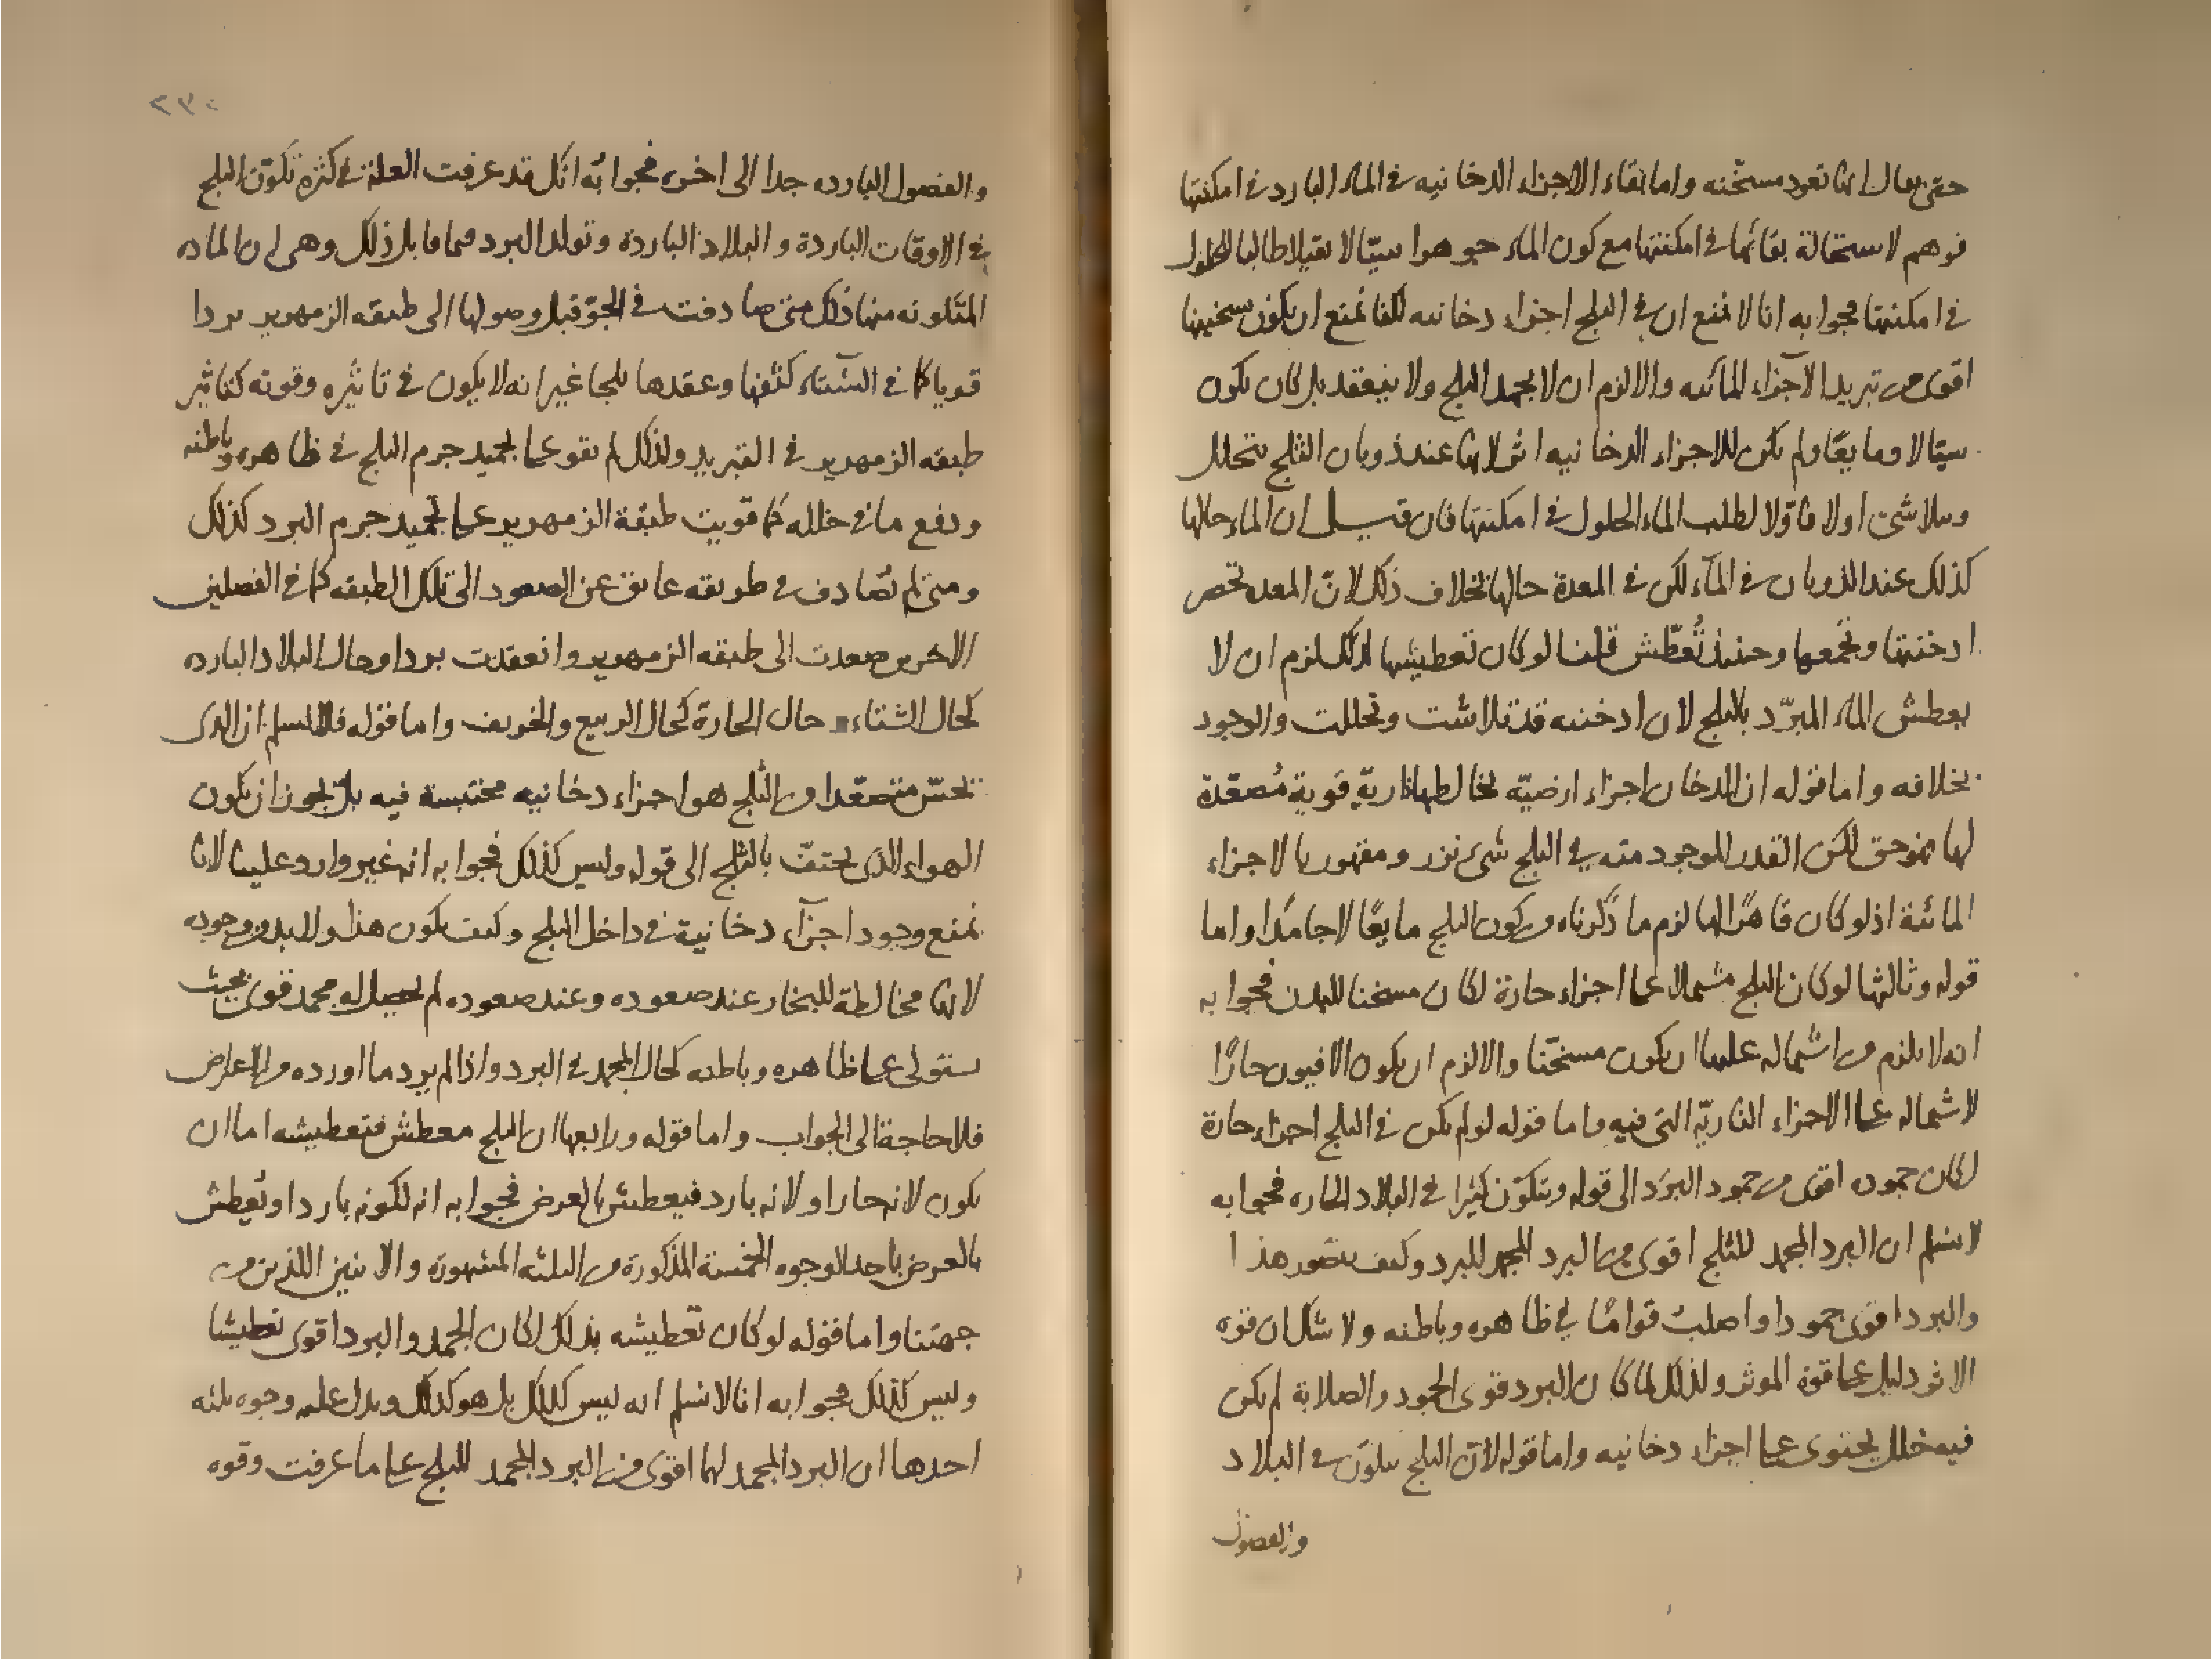 حتى يقال انها تعود مسخّنه واما بقاء الاجزاء الدخانيه في الماء البارد في امكنتها
فوهم لاستحالة بقائها في امكنتها مع كون الماء جوهرا سيّالا ثقيلا طالبا للحلول
في امكنتها فجوابه انا لا نمنع ان في الثلج اجزاء دخانيه لكنا نمنع ان يكون تسخينها
اقوى من تبريد الآجزاء المائيه والا لزم ان لا يجمد الثلج ولا ينعقد بل كان يكون
سيّالا ومايعًا ولم يكن للاجزاء الدخانيه اثر لانها عند ذوبان الثلج تتحلل
وتتلاشى اولا فاولا لطلب الماء الحلول في امكنتها فان قيل ان الماء حالها
كذلك عند الذوبان في المآء لكن في المعدة حالها بخلاف ذلك لانّ المعده تخص
ادخنتها وتجمعها وحينئذ تُعطّش قلنا لو كان تعطيشها لذلك لزم ان لا
يعطش الماء المبرّد بالثلج لان ادخنته قد تلاشت وتحللت والوجود
بخلافه واما قوله ان الدخان اجزاء ارضيّه يخالطها ناريّة قوية مُصعّدة
لها فهو حق لكن القدر الموجود منه في الثلج شىء نزر ومقهور بالاجزاء
المائية اذ لو كان قاهرًا لها لزم ما ذكرناه من كون الثلج مايعًا لا جامدًا واما
قوله وثالثها لو كان الثلج مشتملا على اجزاء حارة لكان مسخنا للبدن فجوابه
انه لا يلزم من اشتماله عليها ان يكون مسخّنا والا لزم ان يكون الافيون حارًا
لاشتماله على الاجزاء الناريّه التى فيه واما قوله لو لم يكن في الثلج اجزاء حارة
لكان جموده اقوى من جمود البرَد الى قوله ويتكوّن كثيرا في البلاد الحاره فجوابه
لا نسلم ان البرد المجمد للثلج اقوى من البرد المجمد للبرد وكيف يتصور هذا
والبرد اقوى جمودا واصلبُ قوامًا في ظاهره وباطنه ولا شك ان قوه
الاثر دليل على قوة الموثر ولذلك لما كان البرد قوى الجمود والصلابة لم يكن
فيه خلل يحتوى على اجزاء دخانيه واما قوله لانّ الثلج يتكوّن في البلاد
والفصول
والفصول البارده جدا الى اخره فجوابُه انك قد عرفت العلة في كثرة تكوّن الثلج
في الاوقات الباردة والبلاد الباردة وتولد البرد فيما قابل ذلك وهى ان الماده
المتكونه منها ذلك متى صادفت في الجوّ قبل وصولها الى طبقه الزمهرير بردا
قويا كما في الشتاء كثفها وعقدها ثلجا غير انه لا يكون في تاثيره وقوته كتاثير
طبقه الزمهرير في التبريد ولذلك لم يقو على تجميد جرم الثلج في ظاهره وباطنه
ودفع ما في خلله كما قويت طبقة الزمهرير على تجميد جرم البرد كذلك
ومتى لم تُصادف في طريقه عايق عن الصعود الى تلك الطبقه كما في الفصلين
الاخرين صعدت الى طبقه الزمهرير وانعقدت بردا وحال البلاد البارده
كحال الشتاء حال الحارة كحال الربيع والخريف واما قوله فلا نسلم ان الذى
تحسّ متصعّدا من الثلج هو اجزاء دخانيه محتبسة فيه بل يجوز ان يكون
الهواء الذى يحتفّ بالثلج الى قوله وليس كذلك فجوابه انه غير وارد علينا لانا
نمنع وجود اجزآء دخانية في داخل الثلج وكيف يكون هذا ولا بد من وجوده
لانها مخالطة للبخار عند صعوده وعند صعوده لم يحصل له مجمد قوى بحيث
يستولى على ظاهره وباطنه كحال المجمد في البرد واذا لم يرد ما اورده من الاعتراض
فلا حاجة الى الجواب واما قوله ورابعها ان الثلج معطش فتعطيشه اما ان
يكون لانه حار او لانه بارد فيعطش بالعرض فجوابه انه لكونه باردا وتُعطش
بالعرض باحد الوجوه الخمسة المذكورة من الثلثه المشهورة والاثنين اللذين من
جهتنا واما قوله لو كان تعطيشه بذلك لكان الجمد والبرد اقوى تعطيشا
وليس كذلك فجوابه انا لا نسلم انه ليس كذلك بل هو كذلك ويدل عليه وجوه ثلثه
احدها ان البرد المجمد لهما اقوى من البرد المجمد للثلج على ما عرفت وقوه